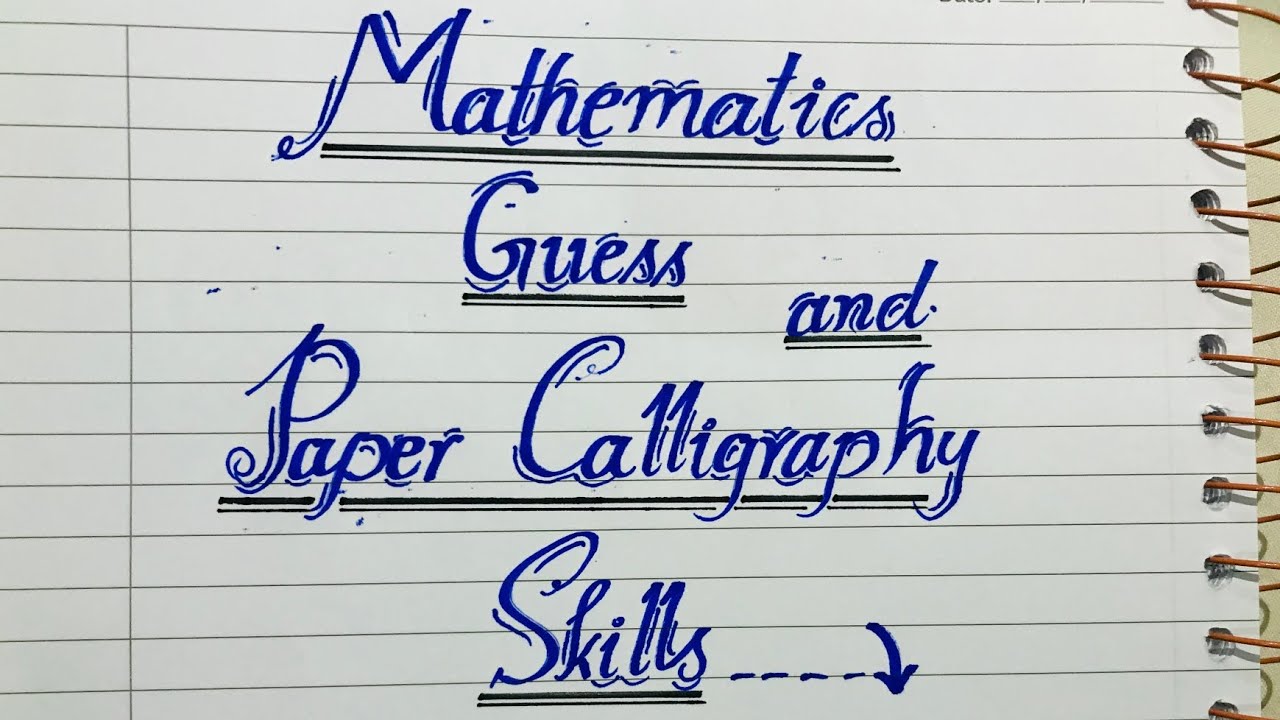 Date:
Mathematics
Guess
and
Paper Calligraphy
Skills